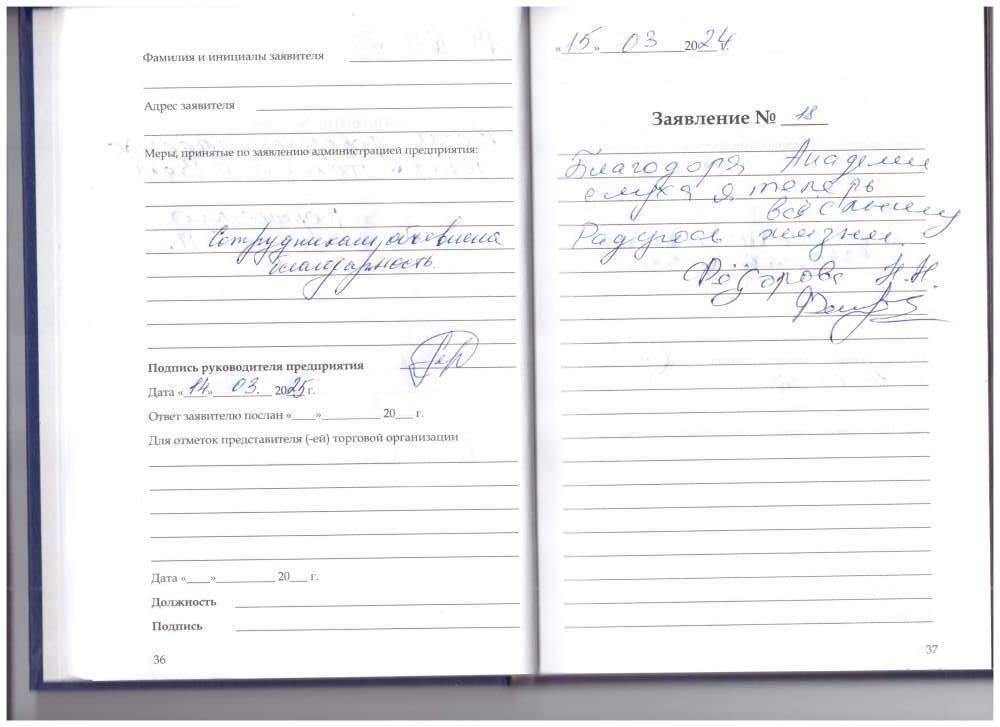 Фамилия и инициалы заявителя
Адрес заявителя
Меры, принятые по заявлению администрацией предприятия:
Сотрудникам объявлена
благодарность.
Подпись руководителя предприятия
Дата «14» 03. 2025 г.
Ответ заявителю послан «____»__________ 20___ г.
Для отметок представителя (-ей) торговой организации
Дата «____»__________ 20___ г.
Должность
Подпись
36
«15» 03 2024 г.
Заявление № 18
Благодоря Академии
слуха я теперь
всё слышу
Радуюсь жизни.
Фёдорова Н.Н.
37